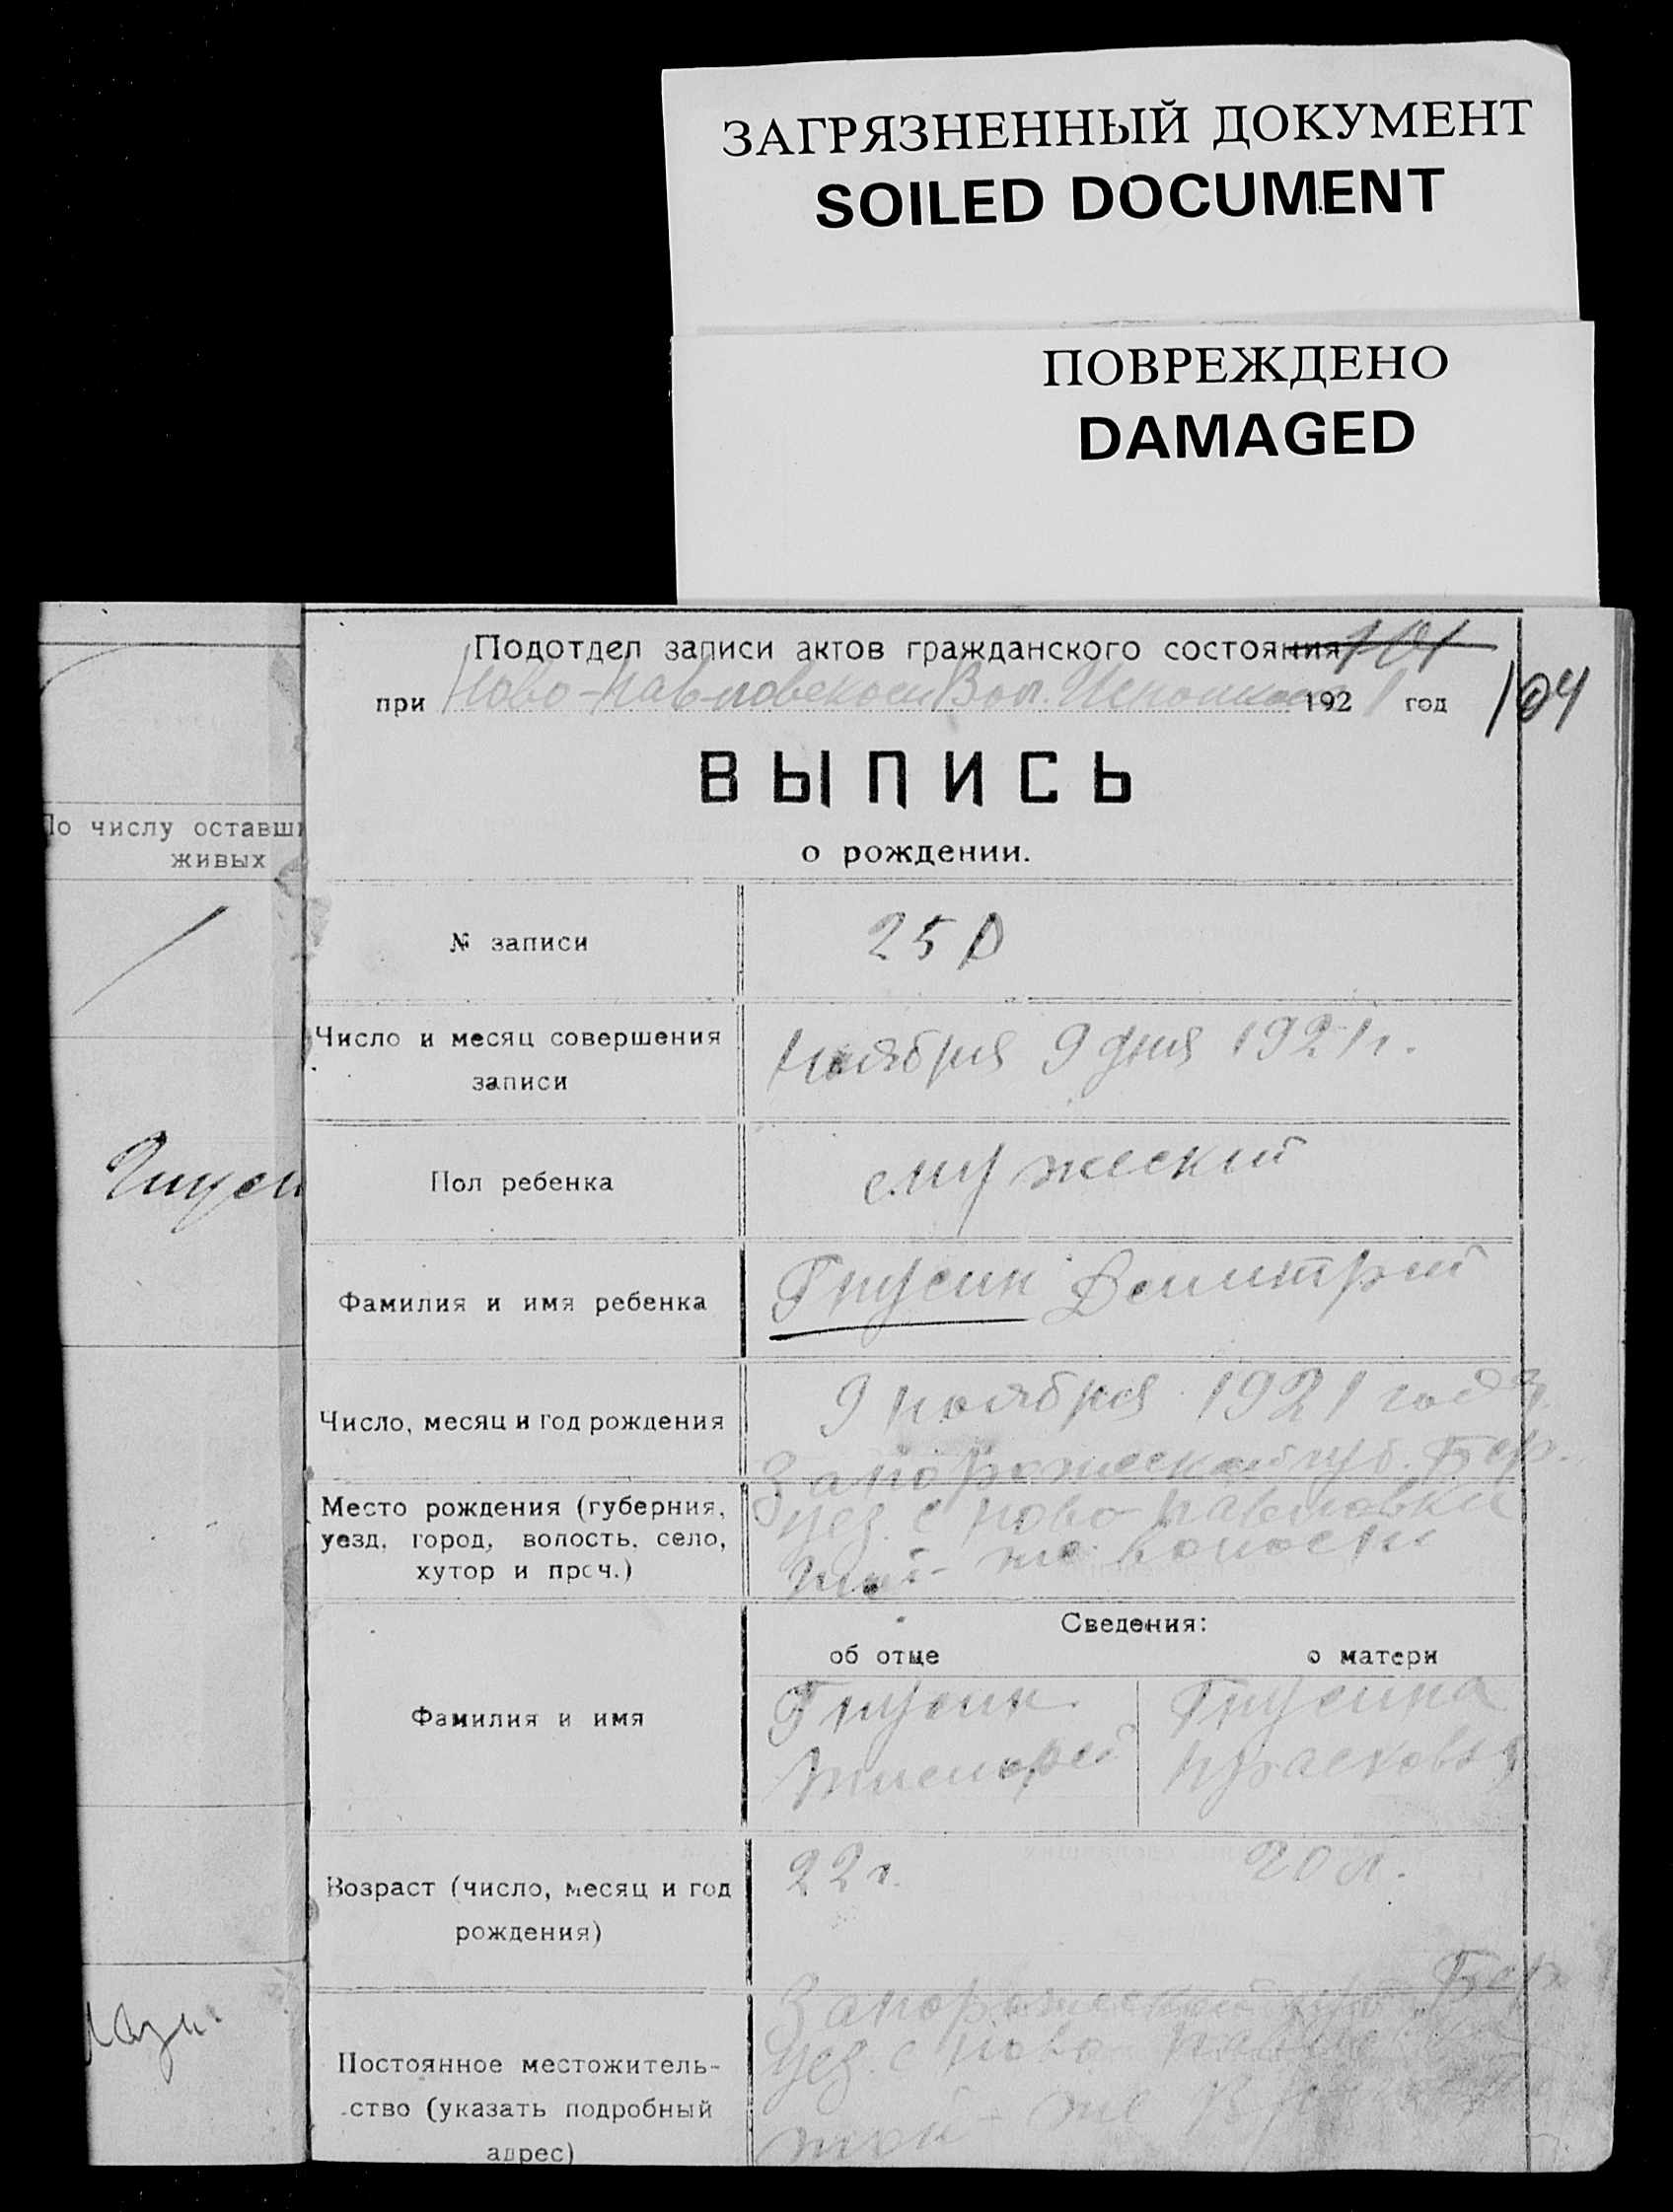 ЗАГРЯЗНЕННЫЙ ДОКУМЕНТ
SOILED DOCUMENT
ПОВРЕЖДЕНО
DAMAGED
Подотдел записи актов гражданского состояния 101
при Ново-Павловском Вол. 1921 год 104
ВЫПИСЬ
о рождении.
По числу оставши
живых
№ записи
25
Число и месяц совершения
записи
Ноября 9 дня 1921 г.
Пол ребенка
мужеский
Фамилия и имя ребенка
Гнусин Димитрий
Число, месяц и год рождения
9 ноября 1921 года
Место рождения (губерния,
уезд, город, волость, село,
хутор и проч.)
Запорожеской губ. Бер.
уез. с Ново-Павловки
той-же волости
Сведения:
об отце
о матери
Фамилия и имя
Гнусин
Гнусина
Прасковья
Возраст (число, месяц и год
рождения)
22 г.
20 л.
Постоянное местожитель-
ство (указать подробный
адрес)
Запорожеской губ Бер
уез. с Ново
той-же